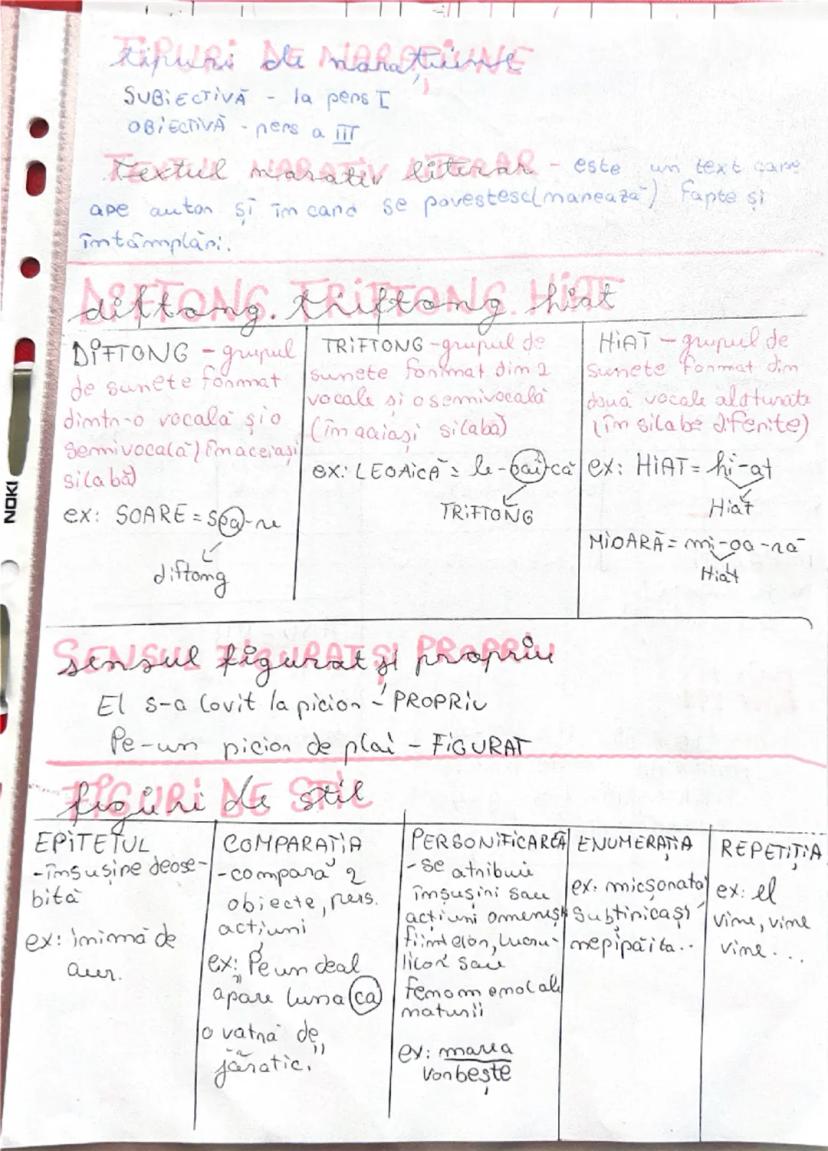 tipuri de narațiune
SUBIECTIVĂ - la pers I
OBIECTIVĂ - pers a III
Textul narativ literar - este un text care
are autor și în care se povestesc (narează) fapte și
întâmplări.
diftong. triftong. hiat
DIFTONG - grupul
de sunete format
dintr-o vocală și o
semivocală (în aceiași
silabă)
ex: SOARE = soa-re
diftong
TRIFTONG - grupul de
sunete format din 2
vocale și o semivocală
(în aciași silabă)
ex: LEOAICĂ = le-oai-că
TRIFTONG
HIAT - grupul de
sunete format din
două vocale alăturate
(în silabe diferite)
ex: HIAT = hi-at
Hiat
MIOARĂ = mi-oa-ră
Hiat
sensul figurat și propriu
El s-a lovit la picior - PROPRIU
Pe-un picior de plai - FIGURAT
figuri de stil
EPITETUL
- însușire deose-
bită
ex: inimă de
aur.
COMPARAȚIA
- compară 2
obiecte, pers.
acțiuni
ex: "Pe un deal
apare luna ca
o vatră de
jăratic."
PERSONIFICAREA
- se atribuie
însușiri sau
acțiuni omenești
ființelor, lucru-
lilor sau
fenomenelol ale
naturii
ex: marea
vorbește
ENUMERAȚIA
ex: micșorata
subțirica și
nepipăita..
REPETIȚIA
ex: el
vine, vine
vine...
NOKI